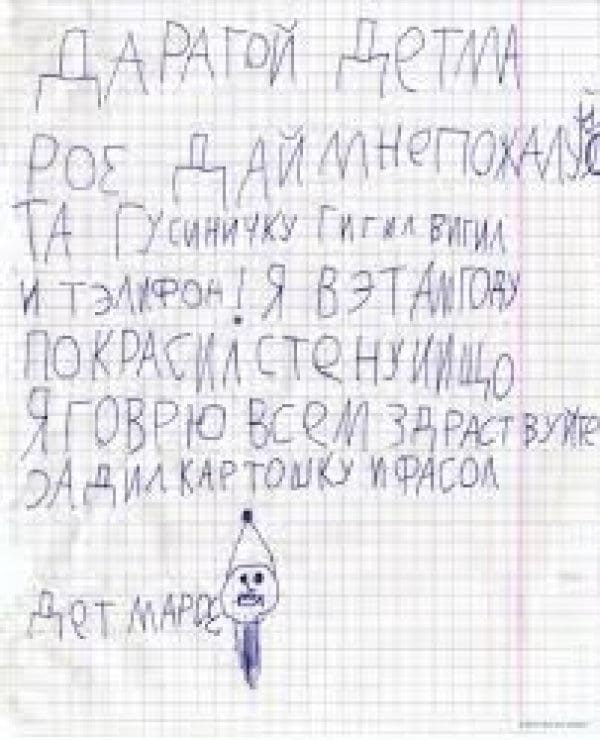 ДАРАГОЙ ДЕТМА
РОЕ ДАЙ МНЕПОХАЛУЙС
ТА ГУСИНИЧКУ ГИГИЛ ВИГИЛ
И ТЭЛИФОН! Я ВЭТАМГОДУ
ПОКРАСИЛ СТЕНУ ИИЩО
Я ГОВРЮ ВСЕМ ЗДРАСТВУЙТЕ
ЭАДИЛ КАРТОШКУ И ФАСОЛ
ДЕТ МАРОС